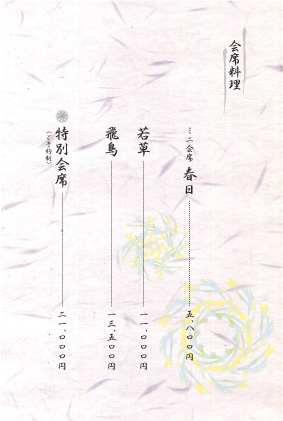 会席料理
ミニ会席 春日 五、八〇〇円
若草 一一、〇〇〇円
飛鳥 一三、五〇〇円
特別会席 二一、〇〇〇円
（ご予約制）